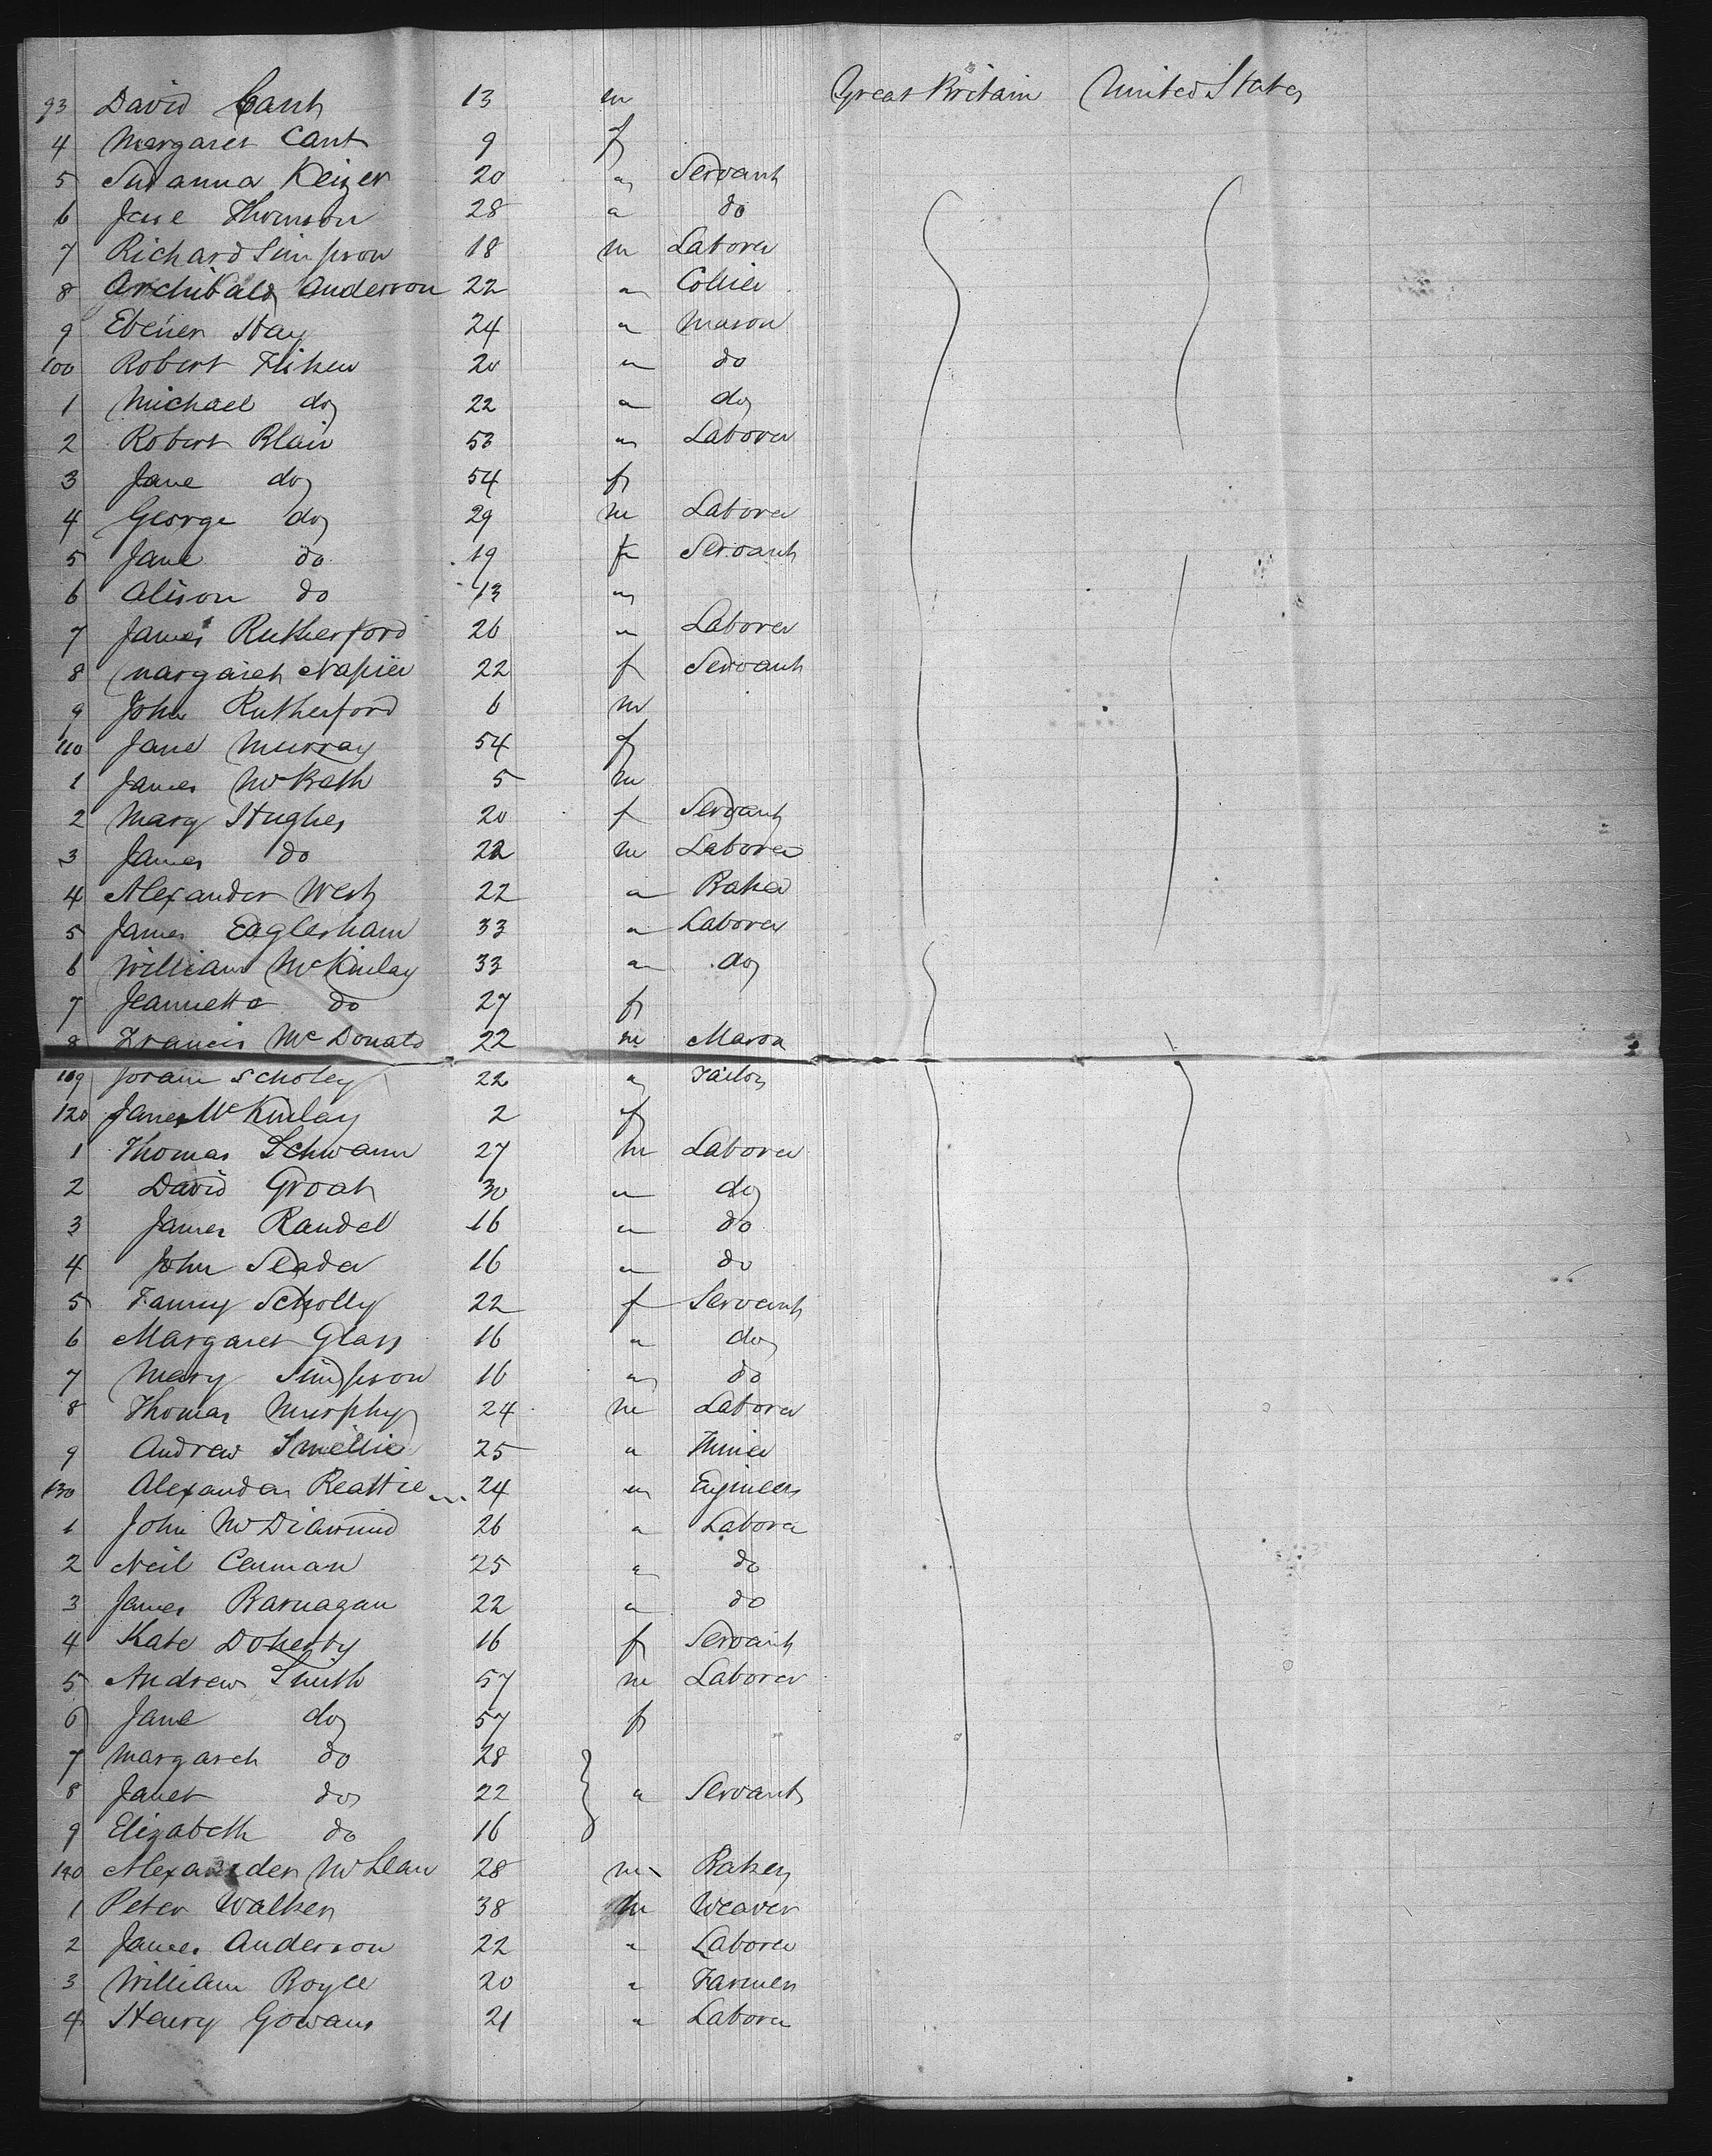 93 David Cant 13 m Great Britain United States
4 Margaret Cant 9 f
5 Susanna Keizer 20 " Servant
6 Jane Thomson 28 " do
7 Richard Simpson 18 m Laborer
8 Archibald Anderson 22 " Collier
9 Ebener Hay 24 " Mason
100 Robert 20 " do
1 Michael do 22 " do
2 Robert Blair 53 " Laborer
3 Jane do 54 f
4 George do 29 m Laborer
5 Jane do 19 f Servant
6 Alison do 13 "
7 James Rutherford 26 " Laborer
8 Margaret Napier 22 f Servant
9 John Rutherford 6 m
110 Jane Murray 54 f
1 James McBath 5 m
2 Mary Hughes 20 f Servant
3 James do 22 m Laborer
4 Alexander West 22 " Baker
5 James Eaglesham 33 " Laborer
6 William McKinlay 33 " do
7 Jeannetta do 27 f
8 Francis McDonald 22 m Mason
119 Joram Scholey 22 " Tailor
120 Janes McKinlay 2 f
1 Thomas Schwann 27 m Laborer
2 David Groat 30 " do
3 James Randel 16 " do
4 John Slader 16 " do
5 Fanny Scholly 22 f Servant
6 Margaret Glass 16 " do
7 Mary Simpson 16 " do
8 Thomas Murphy 24 m Laborer
9 Andrew Smellie 25 " Miner
130 Alexander Beattie 24 " Engineer
1 John McDiarmid 26 " Labora
2 Neil 25 " do
3 James Barnagan 22 " do
4 Kate Doherty 16 f Servant
5 Andrew Smith 57 m Laborer
6 Jane do 57 f
7 Margaret do 28
8 Janet do 22 " Servants
9 Elizabeth do 16
140 Alexander McLean 28 m Baker
1 Peter Walker 38 m Weaver
2 James Anderson 22 " Laborer
3 William Boyle 20 " Farmer
4 Henry Gowans 21 " Labora